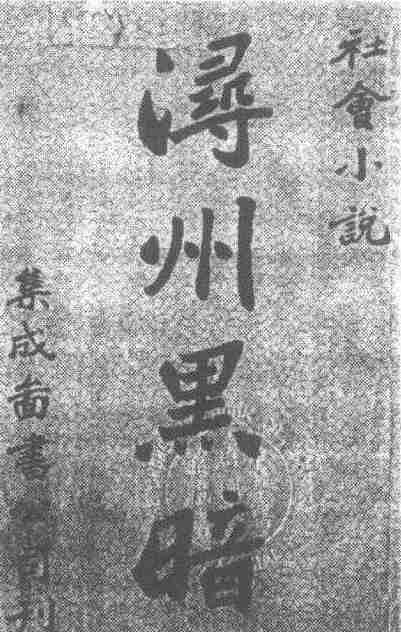 社會小說
潯州黑暗
集成啚書公司刊